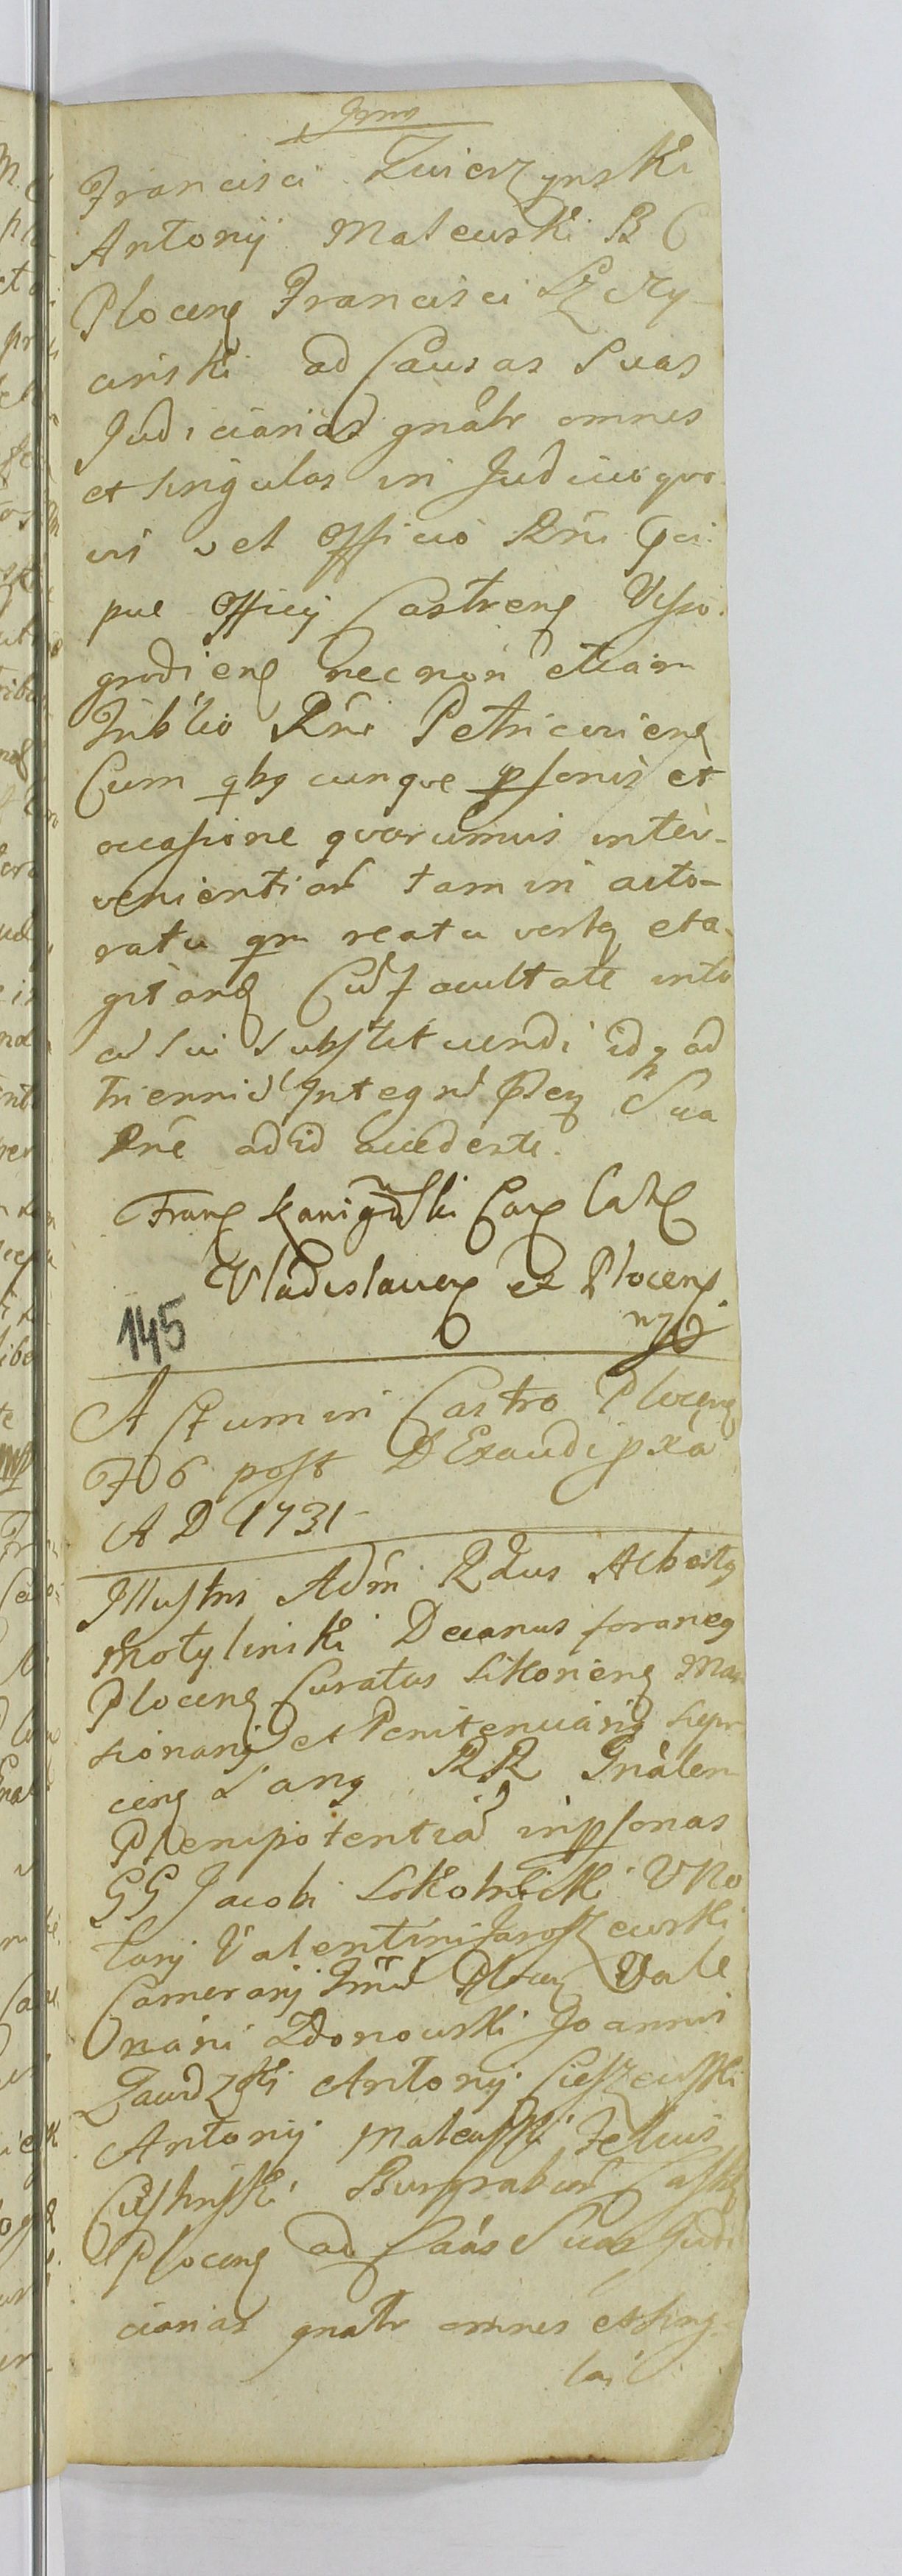 Francisci Zwierzynski
Antonij Malewski B C
Plocens Francisci Szczy-
cinski ad Causas Suas
Judiciarias gnâlr omnes
et singulas in Judicio quo-
vis vel Officio Rñi
pue Officij Castrens Visso-
grodiens nec non etiam
Trib'lio Rñi Petricoviens
Cum qbq cunque psonis et
occasione quorumvis inter-
venientiũ tam in acto-
ratu qm reatu verts et a-
gitand Cũ facultate unio
ad sui Substituendi idq ad
triennium Integrũ
Rñe ad id accedente.
Franc Kanigowski Can Cath
Vladislavien et Plocens
mp
145
Actum in Castro Plocens
F 6 post D Exaudi pxa
A D 1731
Illustris Adm Rdus Albertq
Motylinski Decanus foraneq
Plocens Curatus Sikoriens Man
sionariq et Penitentiariq Siepr
cens RR Gnâlem
Plenipotentiã in psonas
GG Jacobi Sokolnicki V No
tarij Valentini Jaroszewski
Camerarij Plocen Vale
Zdonowski Joannis
Zawdzki Antonij Cieszewski
Antonij Malewski Felicis
Burgrabiũ Castr
Plocens ad Caâs Suas Judi
ciarias gnalr omnes et sing
las